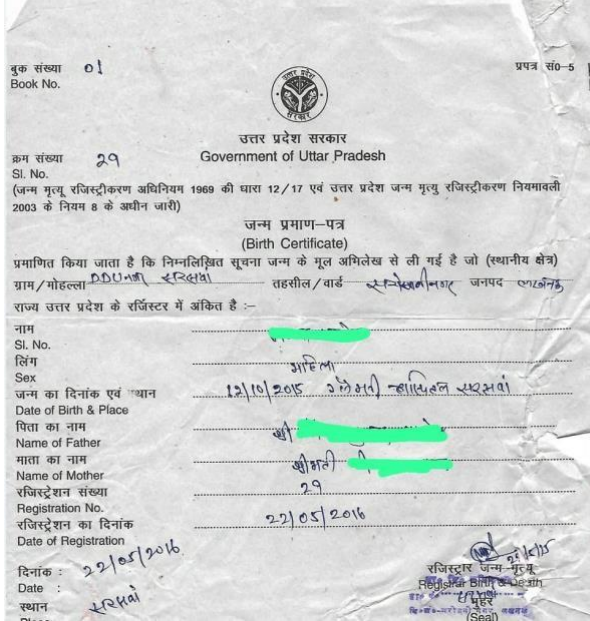 बुक संख्या 01 प्रपत्र सं0-5
Book No.
उत्तर प्रदेश
सरकार
उत्तर प्रदेश सरकार
क्रम संख्या 29 Government of Uttar Pradesh
Sl. No.
(जन्म मृत्यू रजिस्ट्रीकरण अधिनियम 1969 की धारा 12/17 एवं उत्तर प्रदेश जन्म मृत्यु रजिस्ट्रीकरण नियमावली
2003 के नियम 8 के अधीन जारी)
जन्म प्रमाण-पत्र
(Birth Certificate)
प्रमाणित किया जाता है कि निम्नलिखित सूचना जन्म के मूल अभिलेख से ली गई है जो (स्थानीय क्षेत्र)
ग्राम/मोहल्ला सरसवां तहसील/वार्ड सरोजनीनगर जनपद लखनऊ
राज्य उत्तर प्रदेश के रजिस्टर में अंकित है :-
नाम
Sl. No.
लिंग महिला
Sex
जन्म का दिनांक एवं स्थान 12/10/2015 हास्पिटल सरसवां
Date of Birth & Place
पिता का नाम श्री
Name of Father
माता का नाम श्रीमती
Name of Mother
रजिस्ट्रेशन संख्या 29
Registration No.
रजिस्ट्रेशन का दिनांक 22/05/2016
Date of Registration
दिनांक : 22/05/2016
Date :
रजिस्ट्रार जन्म-मृत्यू
Registrar Birth & Death
स्थान सरसवां
मुहर
(Seal)